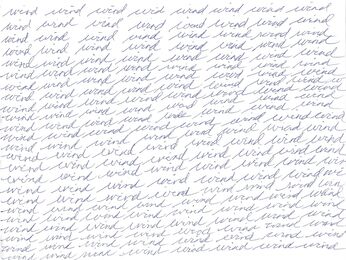 wind wind wind wind wind wind wind wind
wind wind wind wind wind wind wind wind
wind wind wind wind wind wind wind wind
wind wind wind wind wind wind wind wind
wind wind wind wind wind wind wind wind
wind wind wind wind wind wind wind wind
wind wind wind wind wind wind wind wind
wind wind wind wind wind wind wind wind
wind wind wind wind wind wind wind wind
wind wind wind wind wind wind wind wind
wind wind wind wind wind wind wind wind
wind wind wind wind wind wind wind wind
wind wind wind wind wind wind wind wind
wind wind wind wind wind wind wind wind
wind wind wind wind wind wind wind wind
wind wind wind wind wind wind wind wind
wind wind wind wind wind wind wind wind
wind wind wind wind wind wind wind wind
wind wind wind wind wind wind wind wind
wind wind wind wind wind wind wind wind
wind wind wind wind wind wind wind wind
wind wind wind wind wind wind wind wind